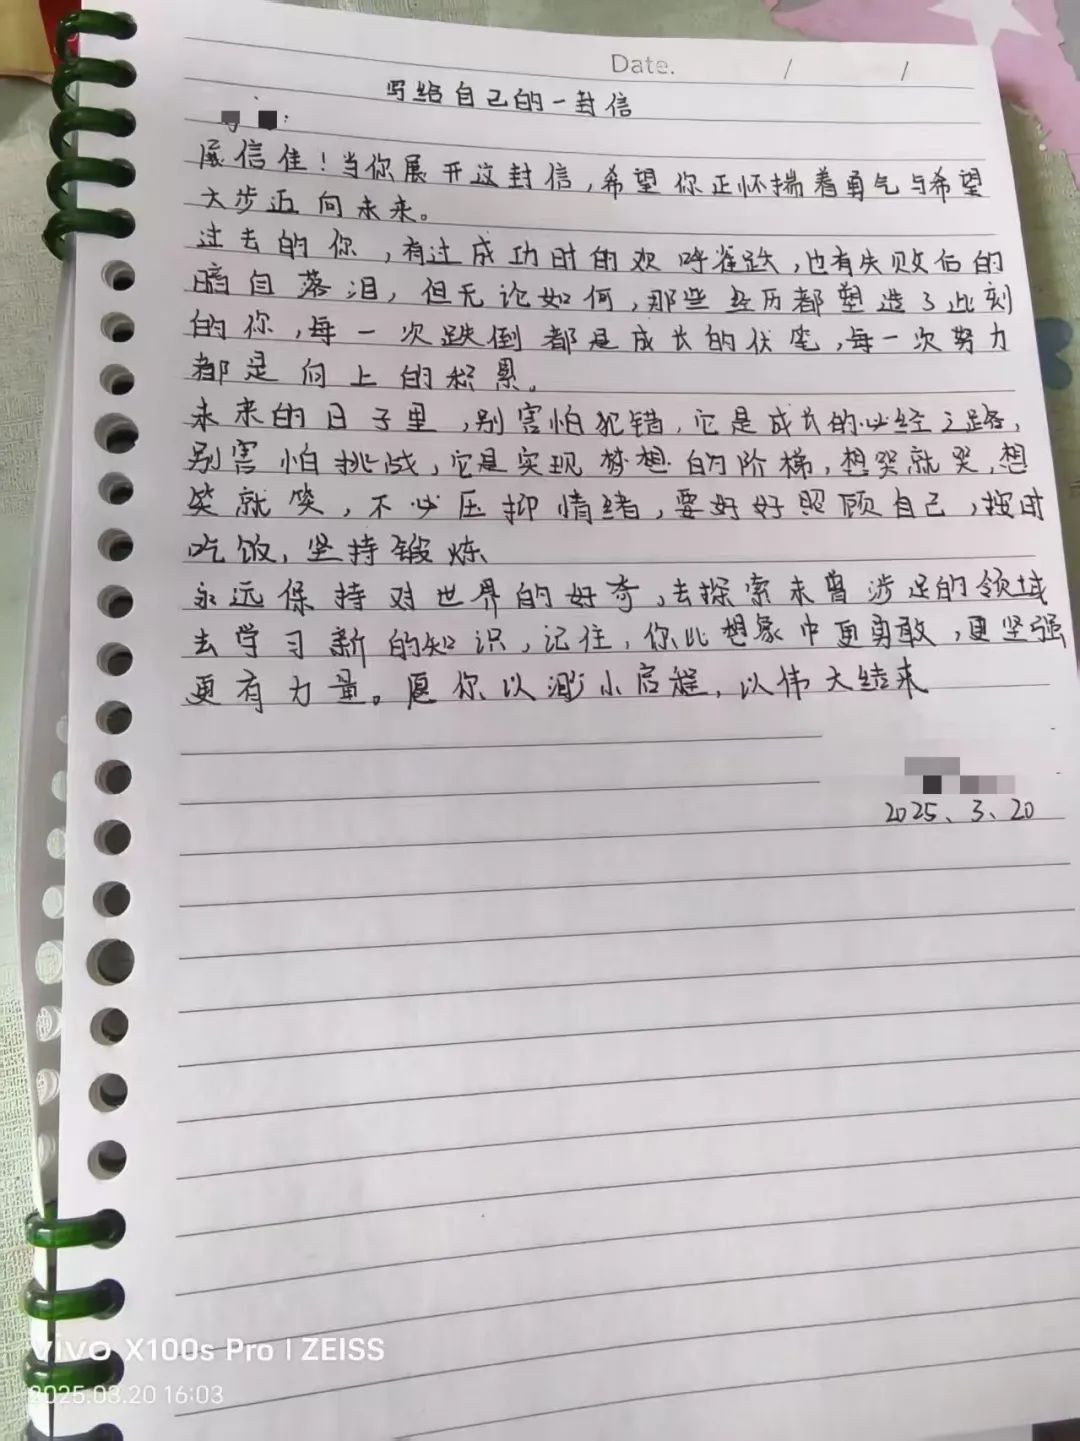 Date. / /
写给自己的一封信
:
展信佳!当你展开这封信,希望你正怀揣着勇气与希望
大步迈向未来。
过去的你,有过成功时的欢呼雀跃,也有失败后的
暗自落泪,但无论如何,那些经历都塑造了此刻
的你,每一次跌倒都是成长的伏笔,每一次努力
都是向上的积累。
未来的日子里,别害怕犯错,它是成长的必经之路,
别害怕挑战,它是实现梦想的阶梯,想哭就哭,想
笑就笑,不必压抑情绪,要好好照顾自己,按时
吃饭,坚持锻炼
永远保持对世界的好奇,去探索未曾涉足的领域
去学习新的知识,记住,你比想象中更勇敢,更坚强
更有力量。愿你以渺小启程,以伟大结束
2025、3、20
vivo X100s Pro | ZEISS
2025.03.20 16:03